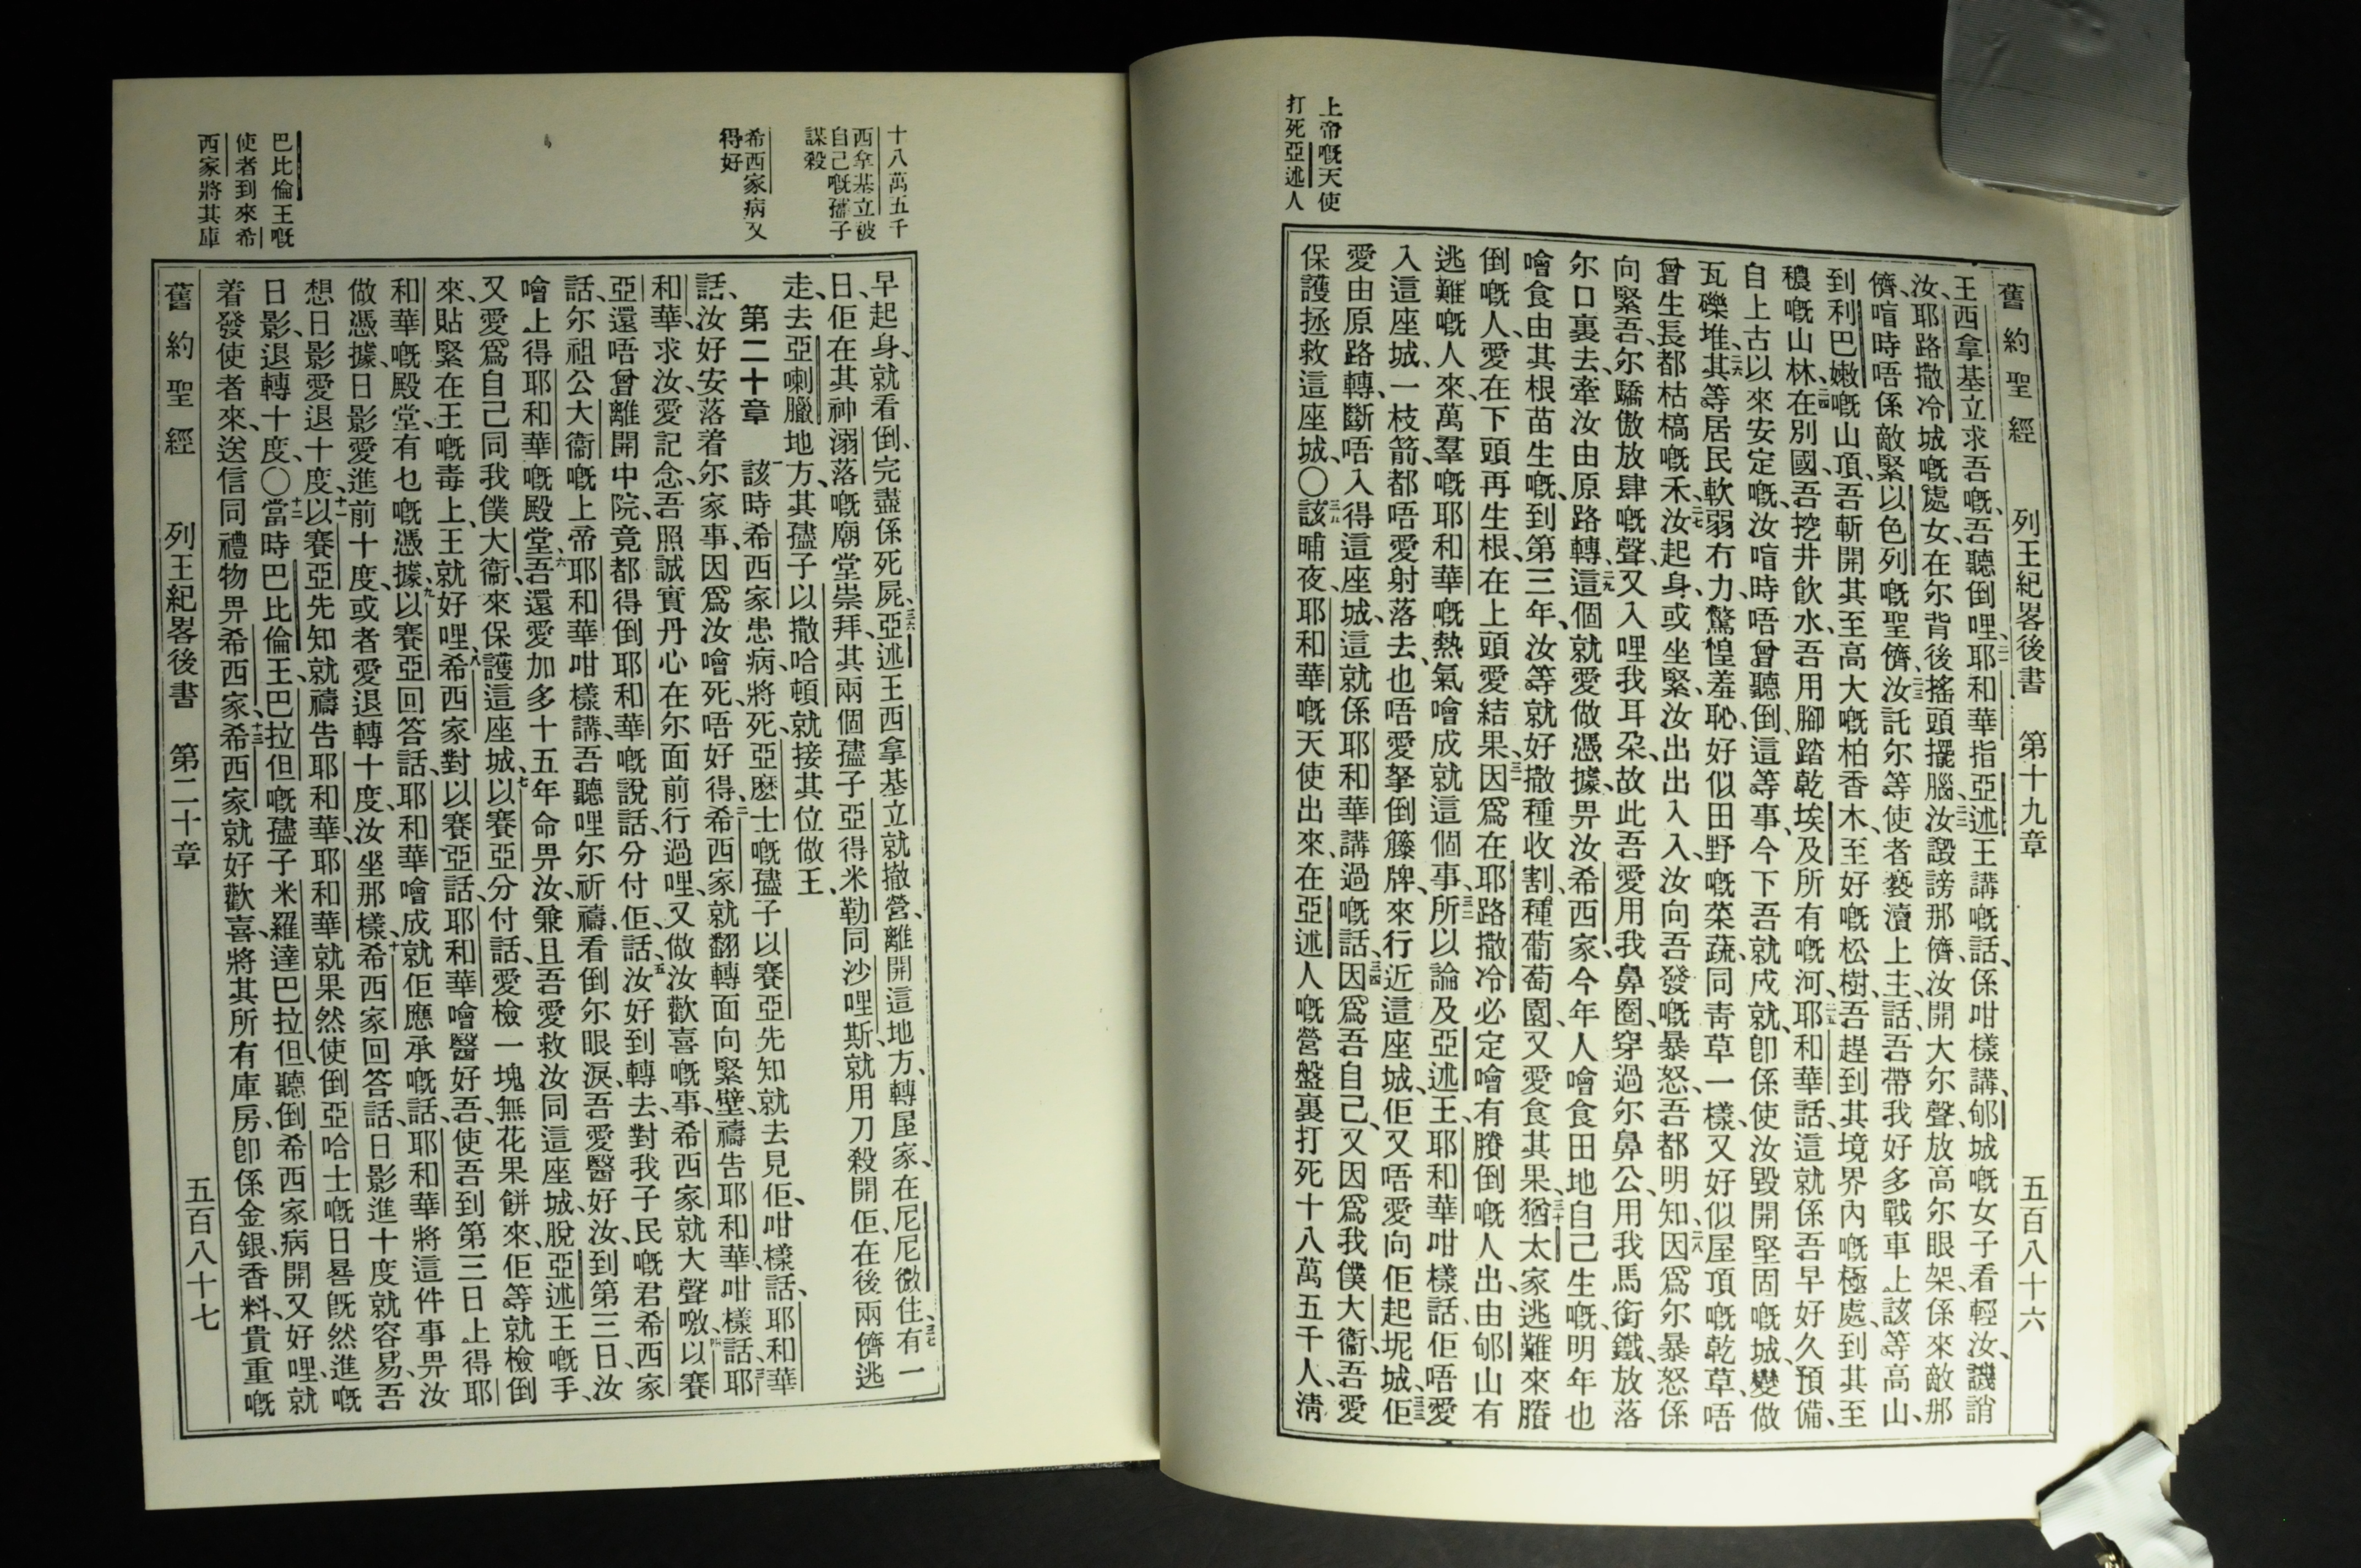 舊約聖經 列王紀畧後書 第十九章 五百八十六
上帝嘅天使
打死亞述人
王西拿基立求吾嘅、吾聽倒哩、二一耶和華指亞述王講嘅話、係咁樣講、郇城嘅女子看輕汝、譏誚
汝、耶路撒冷城嘅處女、在尔背後搖頭擺腦、二二汝譭謗那儕、汝開大尔聲、放高尔眼、架係來敵那
儕、喧時唔係敵緊以色列嘅聖儕、二三汝託尔等使者褻瀆上主、話、吾帶我好多戰車、上該等高山、
到利巴嫩嘅山頂、吾斬開其至高大嘅柏香木、至好嘅松樹、吾趕到其境界內嘅極處、到其至
穠嘅山林、二四在別國、吾挖井飲水、吾用腳踏乾埃及所有嘅河、二五耶和華話、這就係吾早好久預備、
自上古以來安定嘅、汝喧時唔曾聽倒、這等事、今下吾就成就、卽係使汝毀開堅固嘅城、變做
瓦礫堆、二六其等居民軟弱冇力、驚惶羞恥、好似田野嘅菜蔬、同青草一樣、又好似屋頂嘅乾草、唔
曾生長都枯槁嘅禾、二七汝起身、或坐緊、汝出出入入、汝向吾發嘅暴怒、吾都明知、二八因爲尔暴怒係
向緊吾、尔驕傲放肆嘅聲、又入哩我耳朶、故此吾愛用我鼻圈、穿過尔鼻公、用我馬銜鐵、放落
尔口裏去、牽汝由原路轉、二九這個就愛做憑據、畀汝希西家、今年人噲食田地自己生嘅、明年也
噲食由其根苗生嘅、到第三年、汝等就好撒種收割、種葡萄園、又愛食其果、三十猶太家逃難來賸
倒嘅人、愛在下頭再生根、在上頭愛結果、三一因爲在耶路撒冷必定噲有賸倒嘅人出、由郇山有
逃難嘅人來、萬羣嘅耶和華嘅熱氣噲成就這個事、三二所以論及亞述王、耶和華咁樣話、佢唔愛
入這座城、一枝箭、都唔愛射落去、也唔愛拏倒籐牌、來行近這座城、佢又唔愛向佢起坭城、三三佢
愛由原路轉、斷唔入得這座城、這就係耶和華講過嘅話、三四因爲吾自己、又因爲我僕大衞、吾愛
保護拯救這座城、〇三五該晡夜、耶和華嘅天使出來、在亞述人嘅營盤裏打死十八萬五千人、淸
十八萬五千
西拿基立被
自己嘅孻子
謀殺
希西家病又
得好
巴比倫王嘅
使者到來希
西家將其庫
早起身、就看倒、完盡係死屍、三六亞述王西拿基立就撤營、離開這地方、轉屋家、在尼尼微住、三七有一
日、佢在其神溺落嘅廟堂崇拜、其兩個孻子亞得米勒同沙哩斯、就用刀殺開佢、在後兩儕逃
走、去亞喇臘地方、其孻子以撒哈頓就接其位做王、
第二十章 一該時希西家患病、將死、亞麽士嘅孻子以賽亞先知就去見佢、咁樣話、耶和華
話、汝好安落着尔家事、因爲汝噲死、唔好得、二希西家就翻轉面向緊壁、禱告耶和華咁樣話、三耶
和華、求汝、愛記念吾照誠實丹心在尔面前行過哩、又做汝歡喜嘅事、希西家就大聲噭、四以賽
亞還唔曾離開中院、竟都得倒耶和華嘅說話、分付佢、話、五汝好到轉去、對我子民嘅君希西家
話、尔祖公大衞嘅上帝耶和華咁樣講、吾聽哩尔祈禱、看倒尔眼淚、吾愛醫好汝、到第三日、汝
噲上得耶和華嘅殿堂、六吾還愛加多十五年命畀汝、兼且吾愛救汝同這座城、脫亞述王嘅手、
又愛爲自己同我僕大衞、來保護這座城、七以賽亞分付話、愛檢一塊無花果餅來、佢等就檢倒
來、貼緊在王嘅毒上、王就好哩、八希西家對以賽亞話、耶和華噲醫好吾、使吾到第三日上得耶
和華嘅殿堂、有乜嘅憑據、九以賽亞回答話、耶和華噲成就佢應承嘅話、耶和華將這件事畀汝
做憑據、日影愛進前十度、或者愛退轉十度、汝㘸那樣、十希西家回答話、日影進十度就容易、吾
想日影愛退十度、十一以賽亞先知就禱告耶和華、耶和華就果然使倒亞哈士嘅日晷旣然進嘅
日影、退轉十度、〇十二當時巴比倫王、巴拉但嘅孻子米羅達巴拉但、聽倒希西家病開又好哩、就
着發使者來、送信同禮物畀希西家、十三希西家就好歡喜、將其所有庫房、卽係金銀、香料、貴重嘅
舊約聖經 列王紀畧後書 第二十章 五百八十七